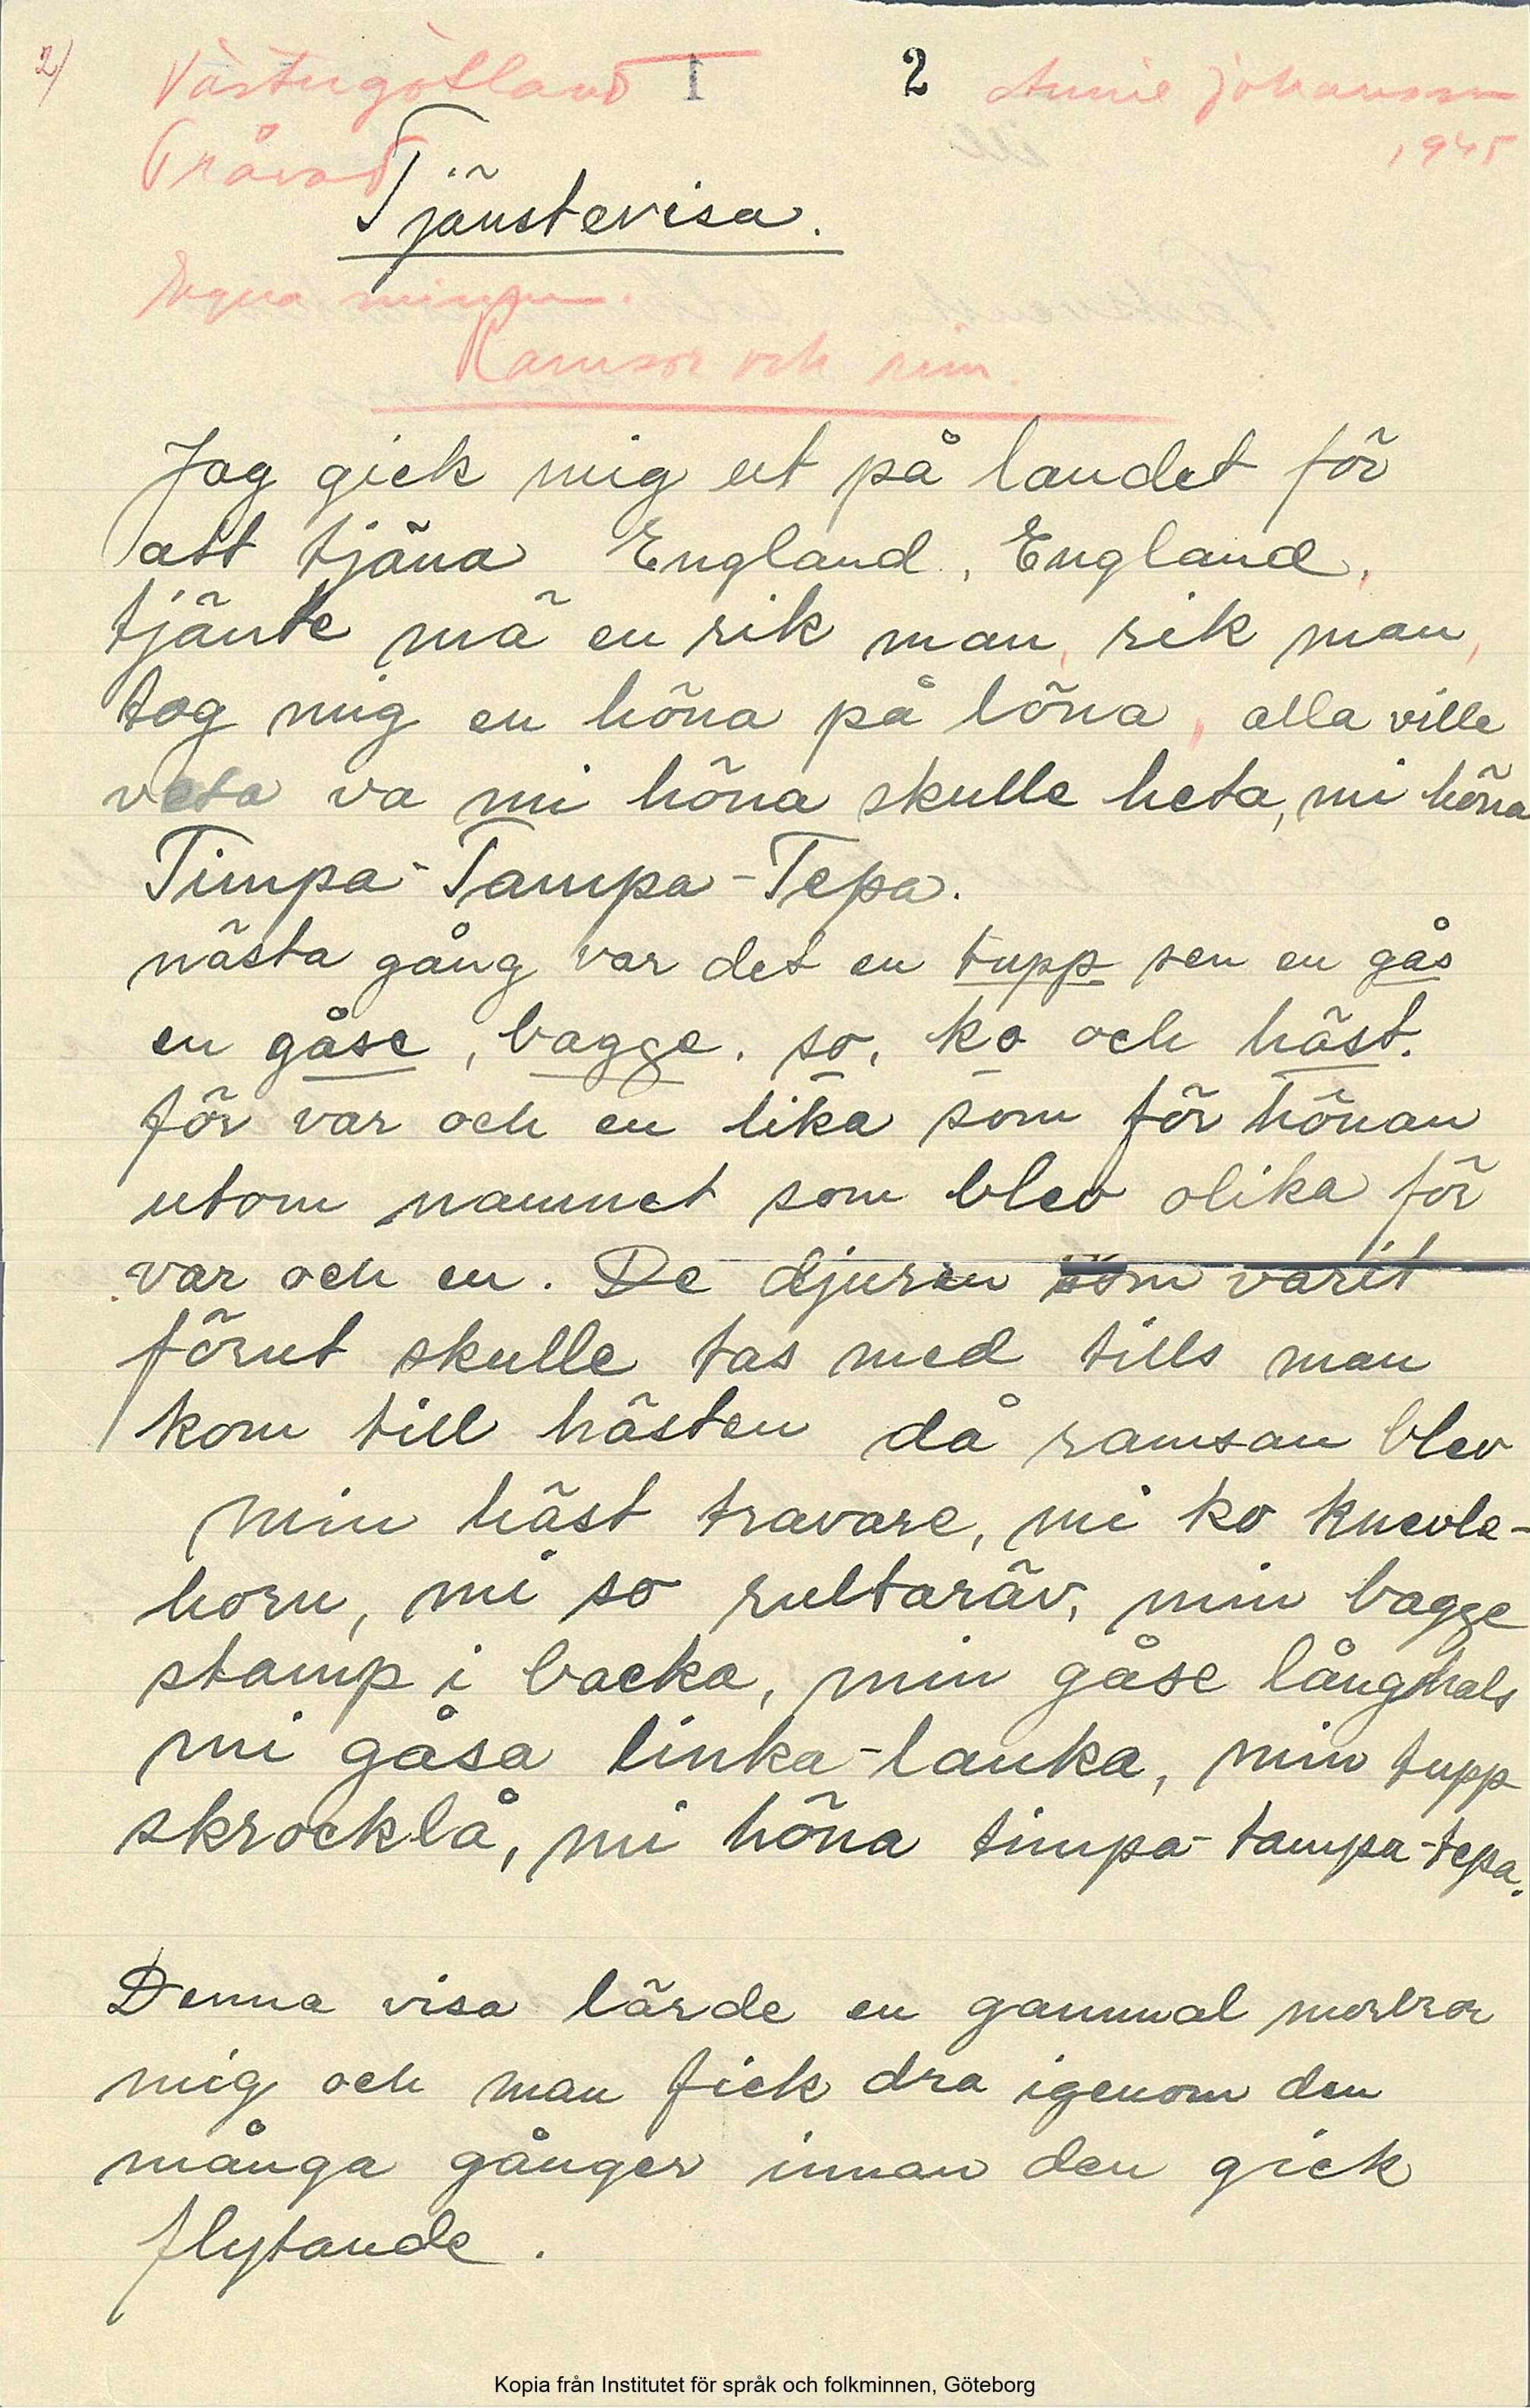 2)
Västergötland 1 2 Annie Johansson
Tråvad 1945
Tjänstevisa.
Egna minnen.
Ramsor och rim.
Jag gick mig ut på landet för
att tjäna England, England,
tjänte mä en rik man, rik man,
tog mig en höna på löna, alla ville
veta va mi höna skulle heta, mi höna
Timpa-Tampa-Tepa.
nästa gång var det en tupp sen en gås
en gåse, bagge, so, ko och häst.
för var och en lika som för hönan
utom namnet som blev olika för
var och en. De djuren som varit
förut skulle tas med tills man
kom till hästen då ramsan blev
min häst travare, mi ko knevle-
horn, mi so rultaräv, min bagge
stamp i backa, min gåse långhals
mi gåsa linka-lanka, min tupp
skrocklå, mi höna timpa-tampa-tepa.
Denna visa lärde en gammal morbror
mig och man fick dra igenom den
många gånger innan den gick
flytande.
Kopia från Institutet för språk och folkminnen, Göteborg